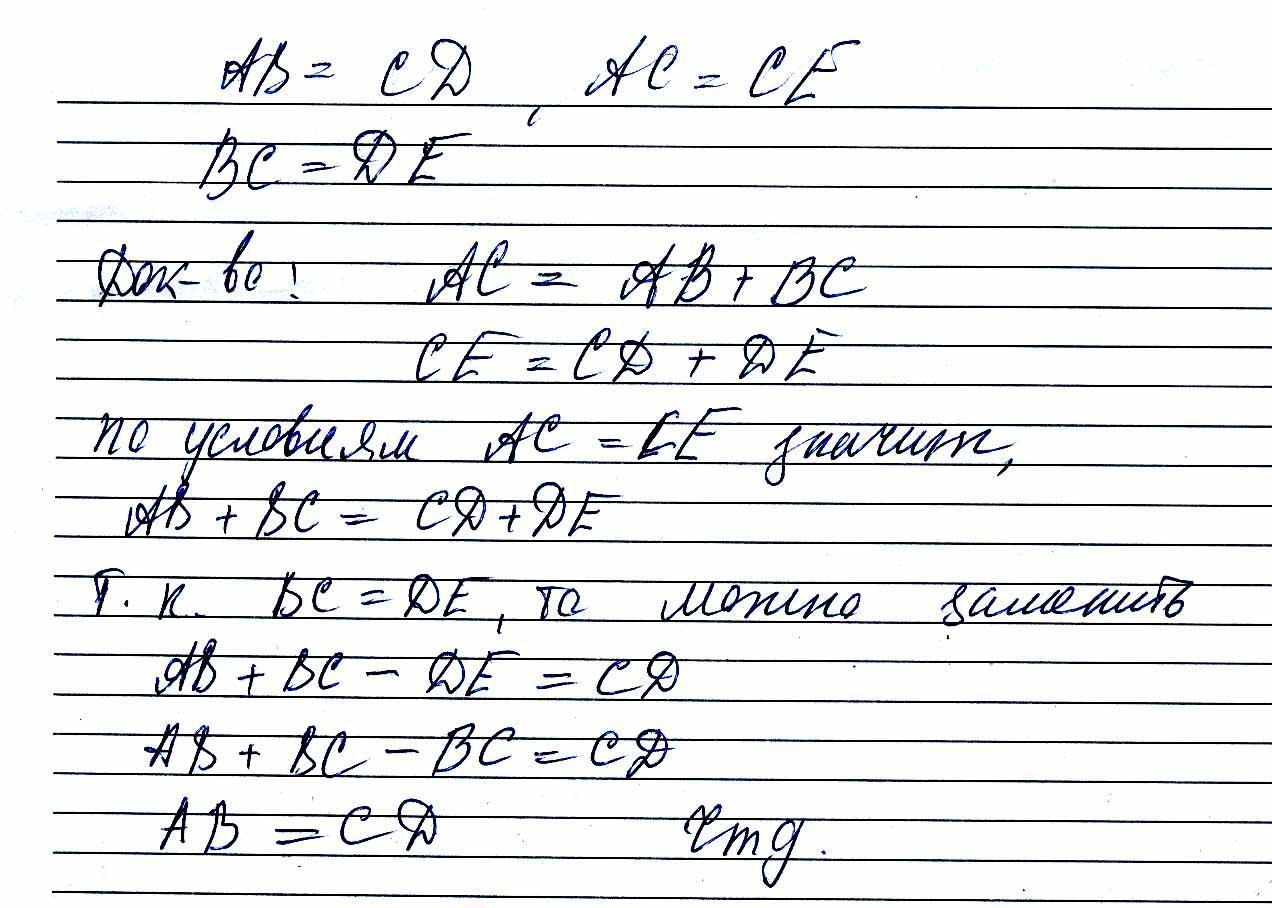 AB = CD, AC = CE
BC = DE
Док-во: AC = AB + BC
CE = CD + DE
по условиям AC = CE значит,
AB + BC = CD + DE
Т. к. BC = DE, то можно заменить
AB + BC - DE = CD
AB + BC - BC = CD
AB = CD Чтд.